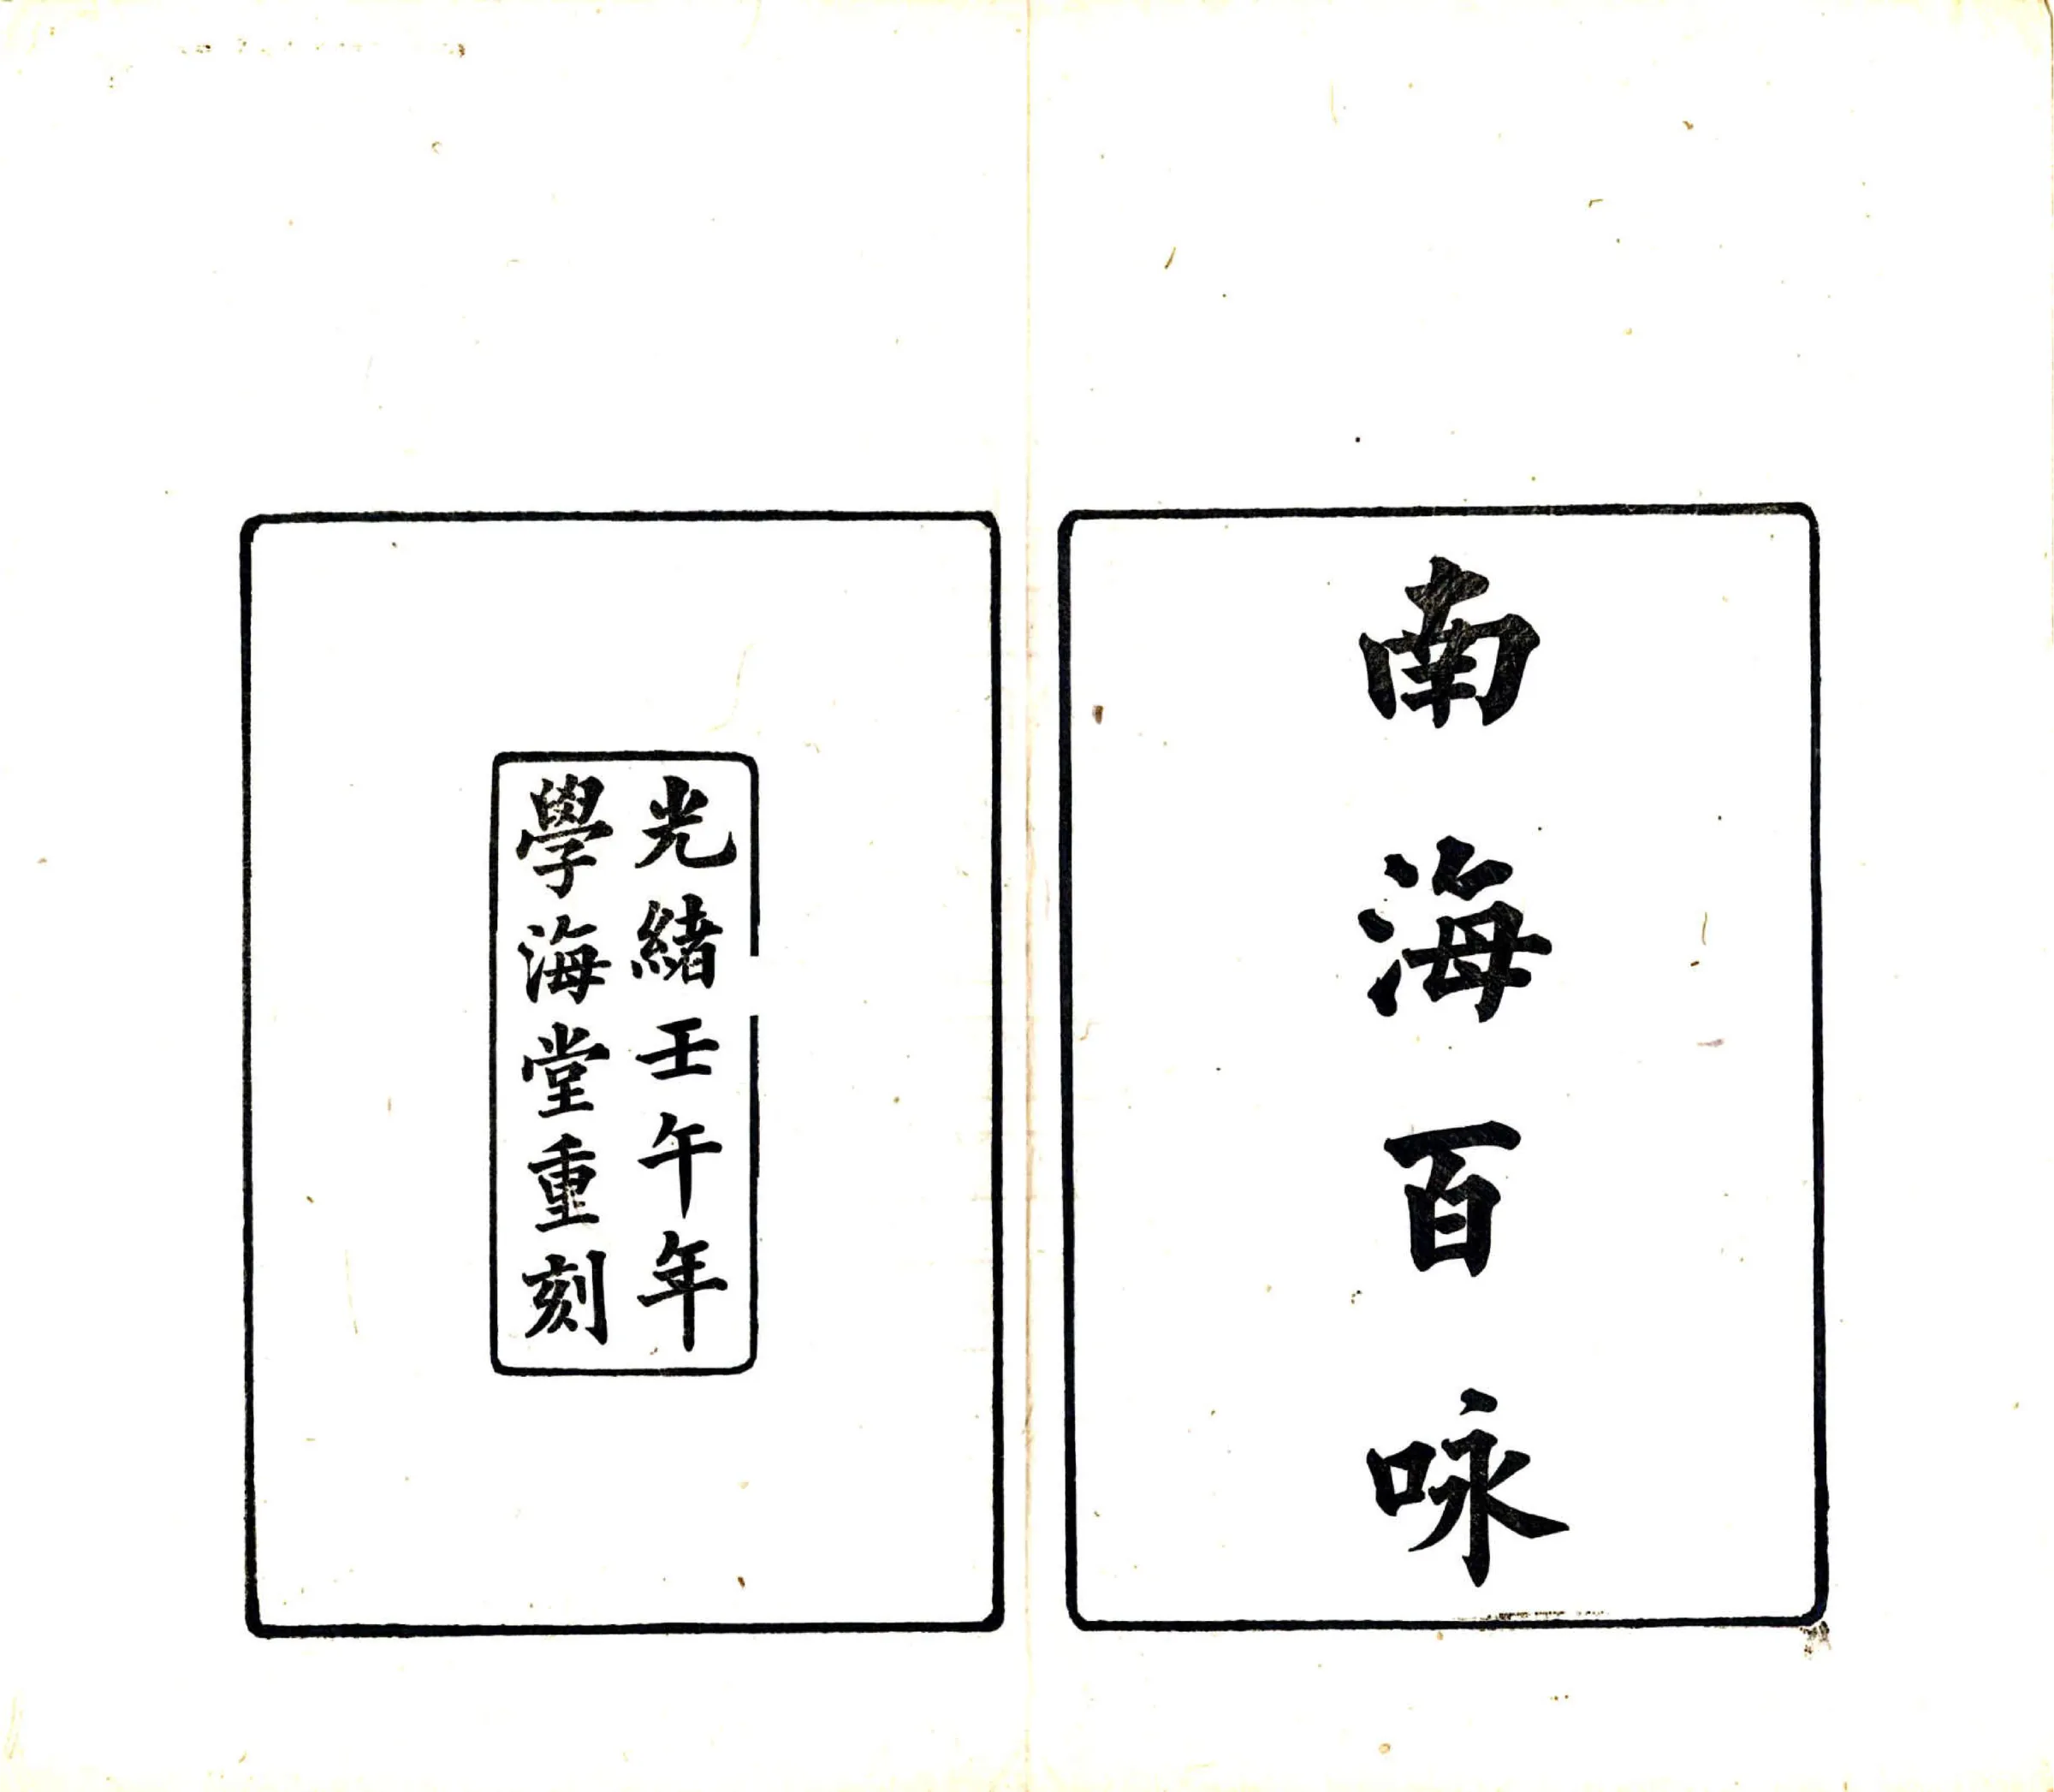 南海百咏
光緒壬午年
學海堂重刻